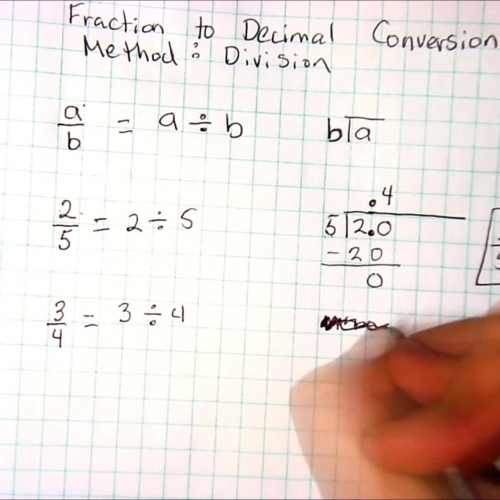 Fraction to Decimal Conversion
Method : Division
a/b = a ÷ b
b⟌a
2/5 = 2 ÷ 5
.4
5⟌2.0
- 20
0
3/4 = 3 ÷ 4